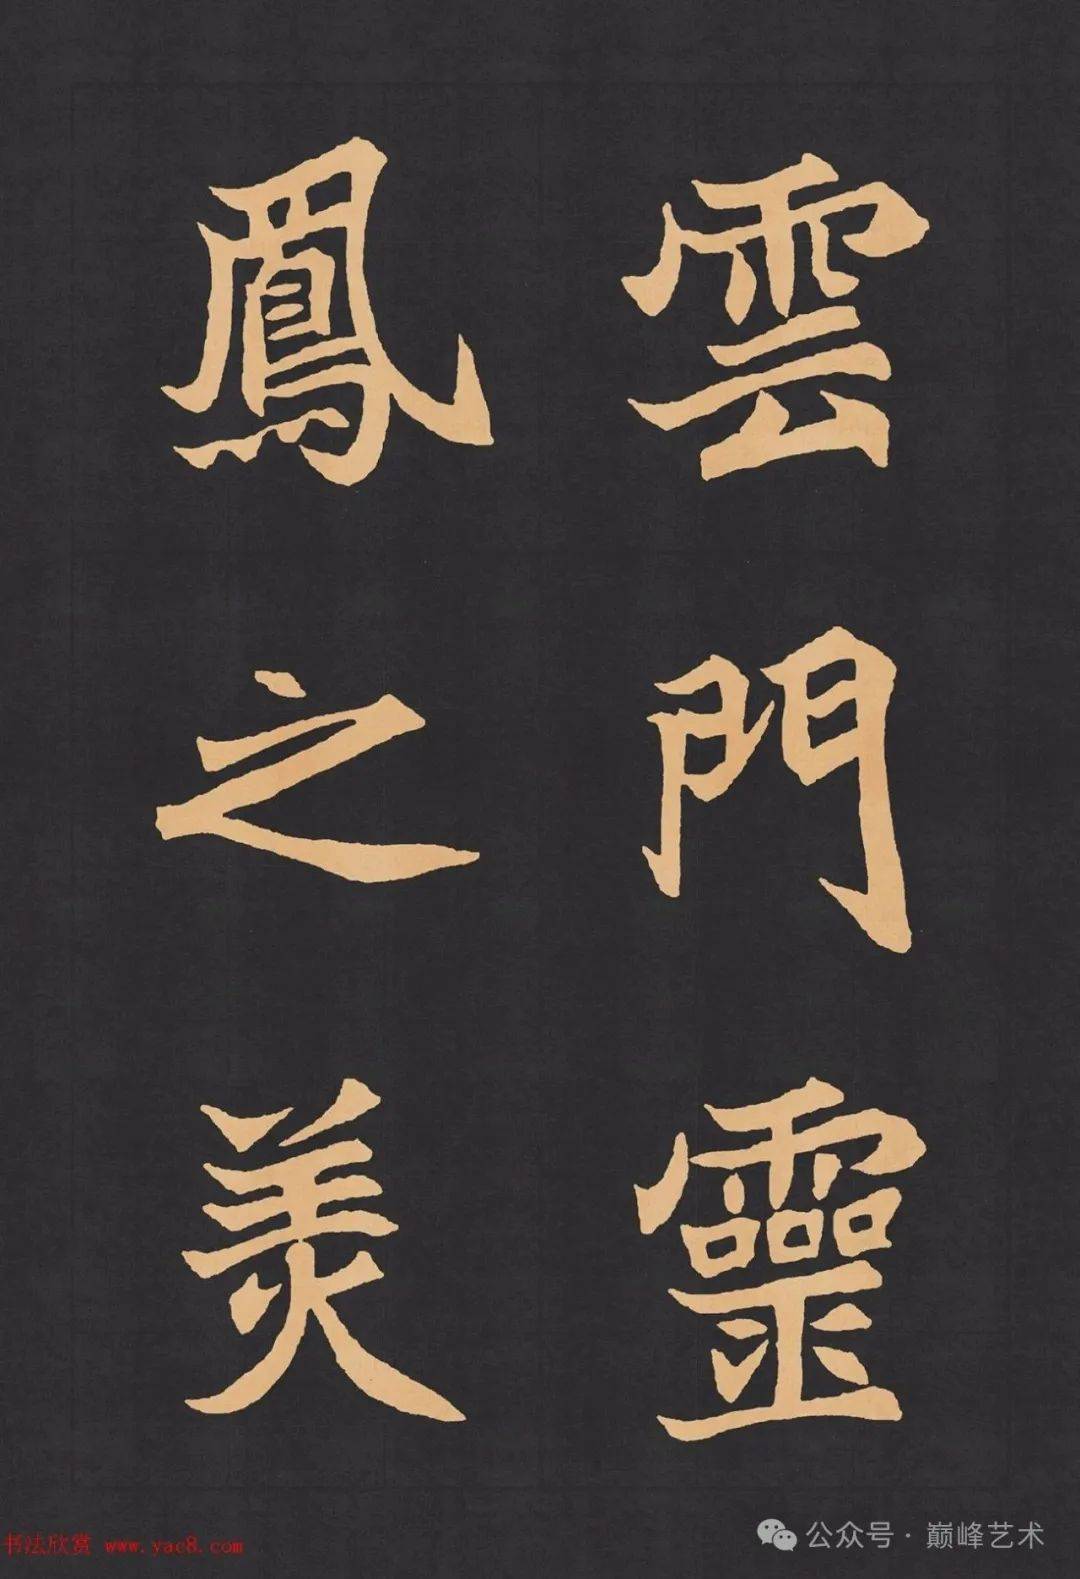 雲門靈
鳳之美
书法欣赏 www.yac8.com
公众号·巅峰艺术